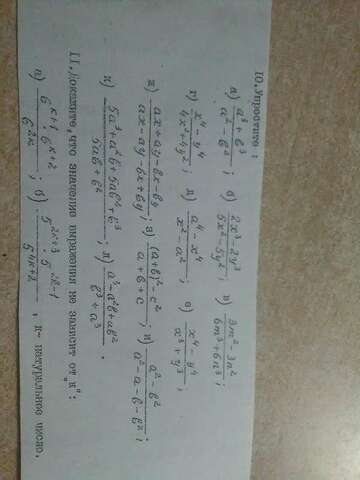 10. Упростите :
а) (a³ + b³)/(a² - b²) ; б) (2x³ - 2y³)/(5x² - 5y²) ; в) (3m² - 3n²)/(6m³ + 6n³) ;
г) (x⁴ - y⁴)/(4x² + 4y²) ; д) (a⁴ - x⁴)/(x² - a²) ; е) (x⁴ - y⁴)/(x³ + y³) ;
ж) (ax + ay - bx - by)/(ax - ay - bx + by) ; з) ((a+b)² - c²)/(a + b + c) ; и) (a² - b²)/(a² - a - b - b²) ;
к) (5a³ + a²b + 5ab² + b³)/(5ab + b²) ; л) (a³ - a²b + ab²)/(b³ + a³) .
11. Докажите, что значение выражения не зависит от "к":
а) (6^(к+1) · 6^(к+2))/(6^(2к)) ; б) (5^(2к+3) · 5^(2к-1))/(5^(4к+2)) , к- натуральное число.